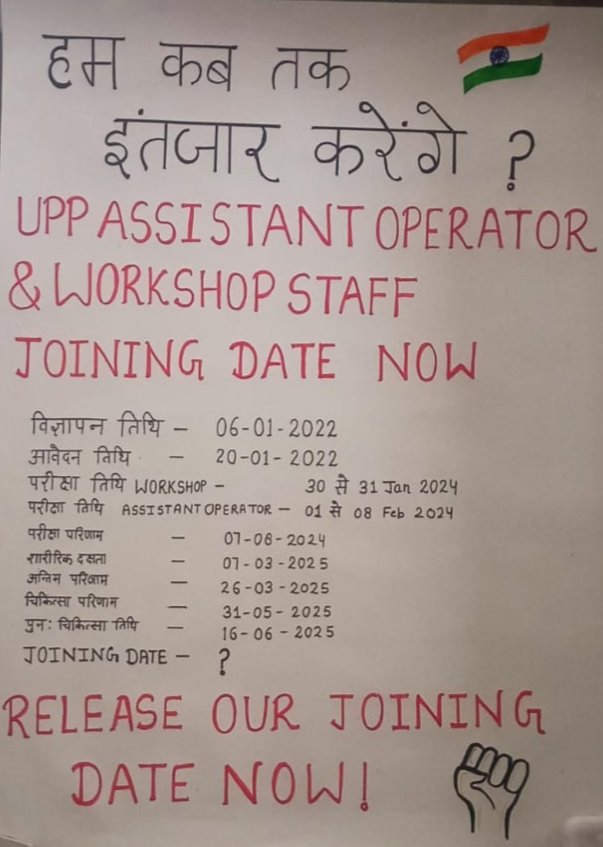 हम कब तक
इंतजार करेंगे ?
UPP ASSISTANT OPERATOR
& WORKSHOP STAFF
JOINING DATE NOW
विज्ञापन तिथि - 06-01-2022
आवेदन तिथि - 20-01-2022
परीक्षा तिथि WORKSHOP - 30 से 31 Jan 2024
परीक्षा तिथि ASSISTANT OPERATOR - 01 से 08 Feb 2024
परीक्षा परिणाम - 07-08-2024
शारीरिक दक्षता - 07-03-2025
अन्तिम परिणाम - 26-03-2025
चिकित्सा परिणाम - 31-05-2025
पुनः चिकित्सा तिथि - 16-06-2025
JOINING DATE - ?
RELEASE OUR JOINING
DATE NOW!